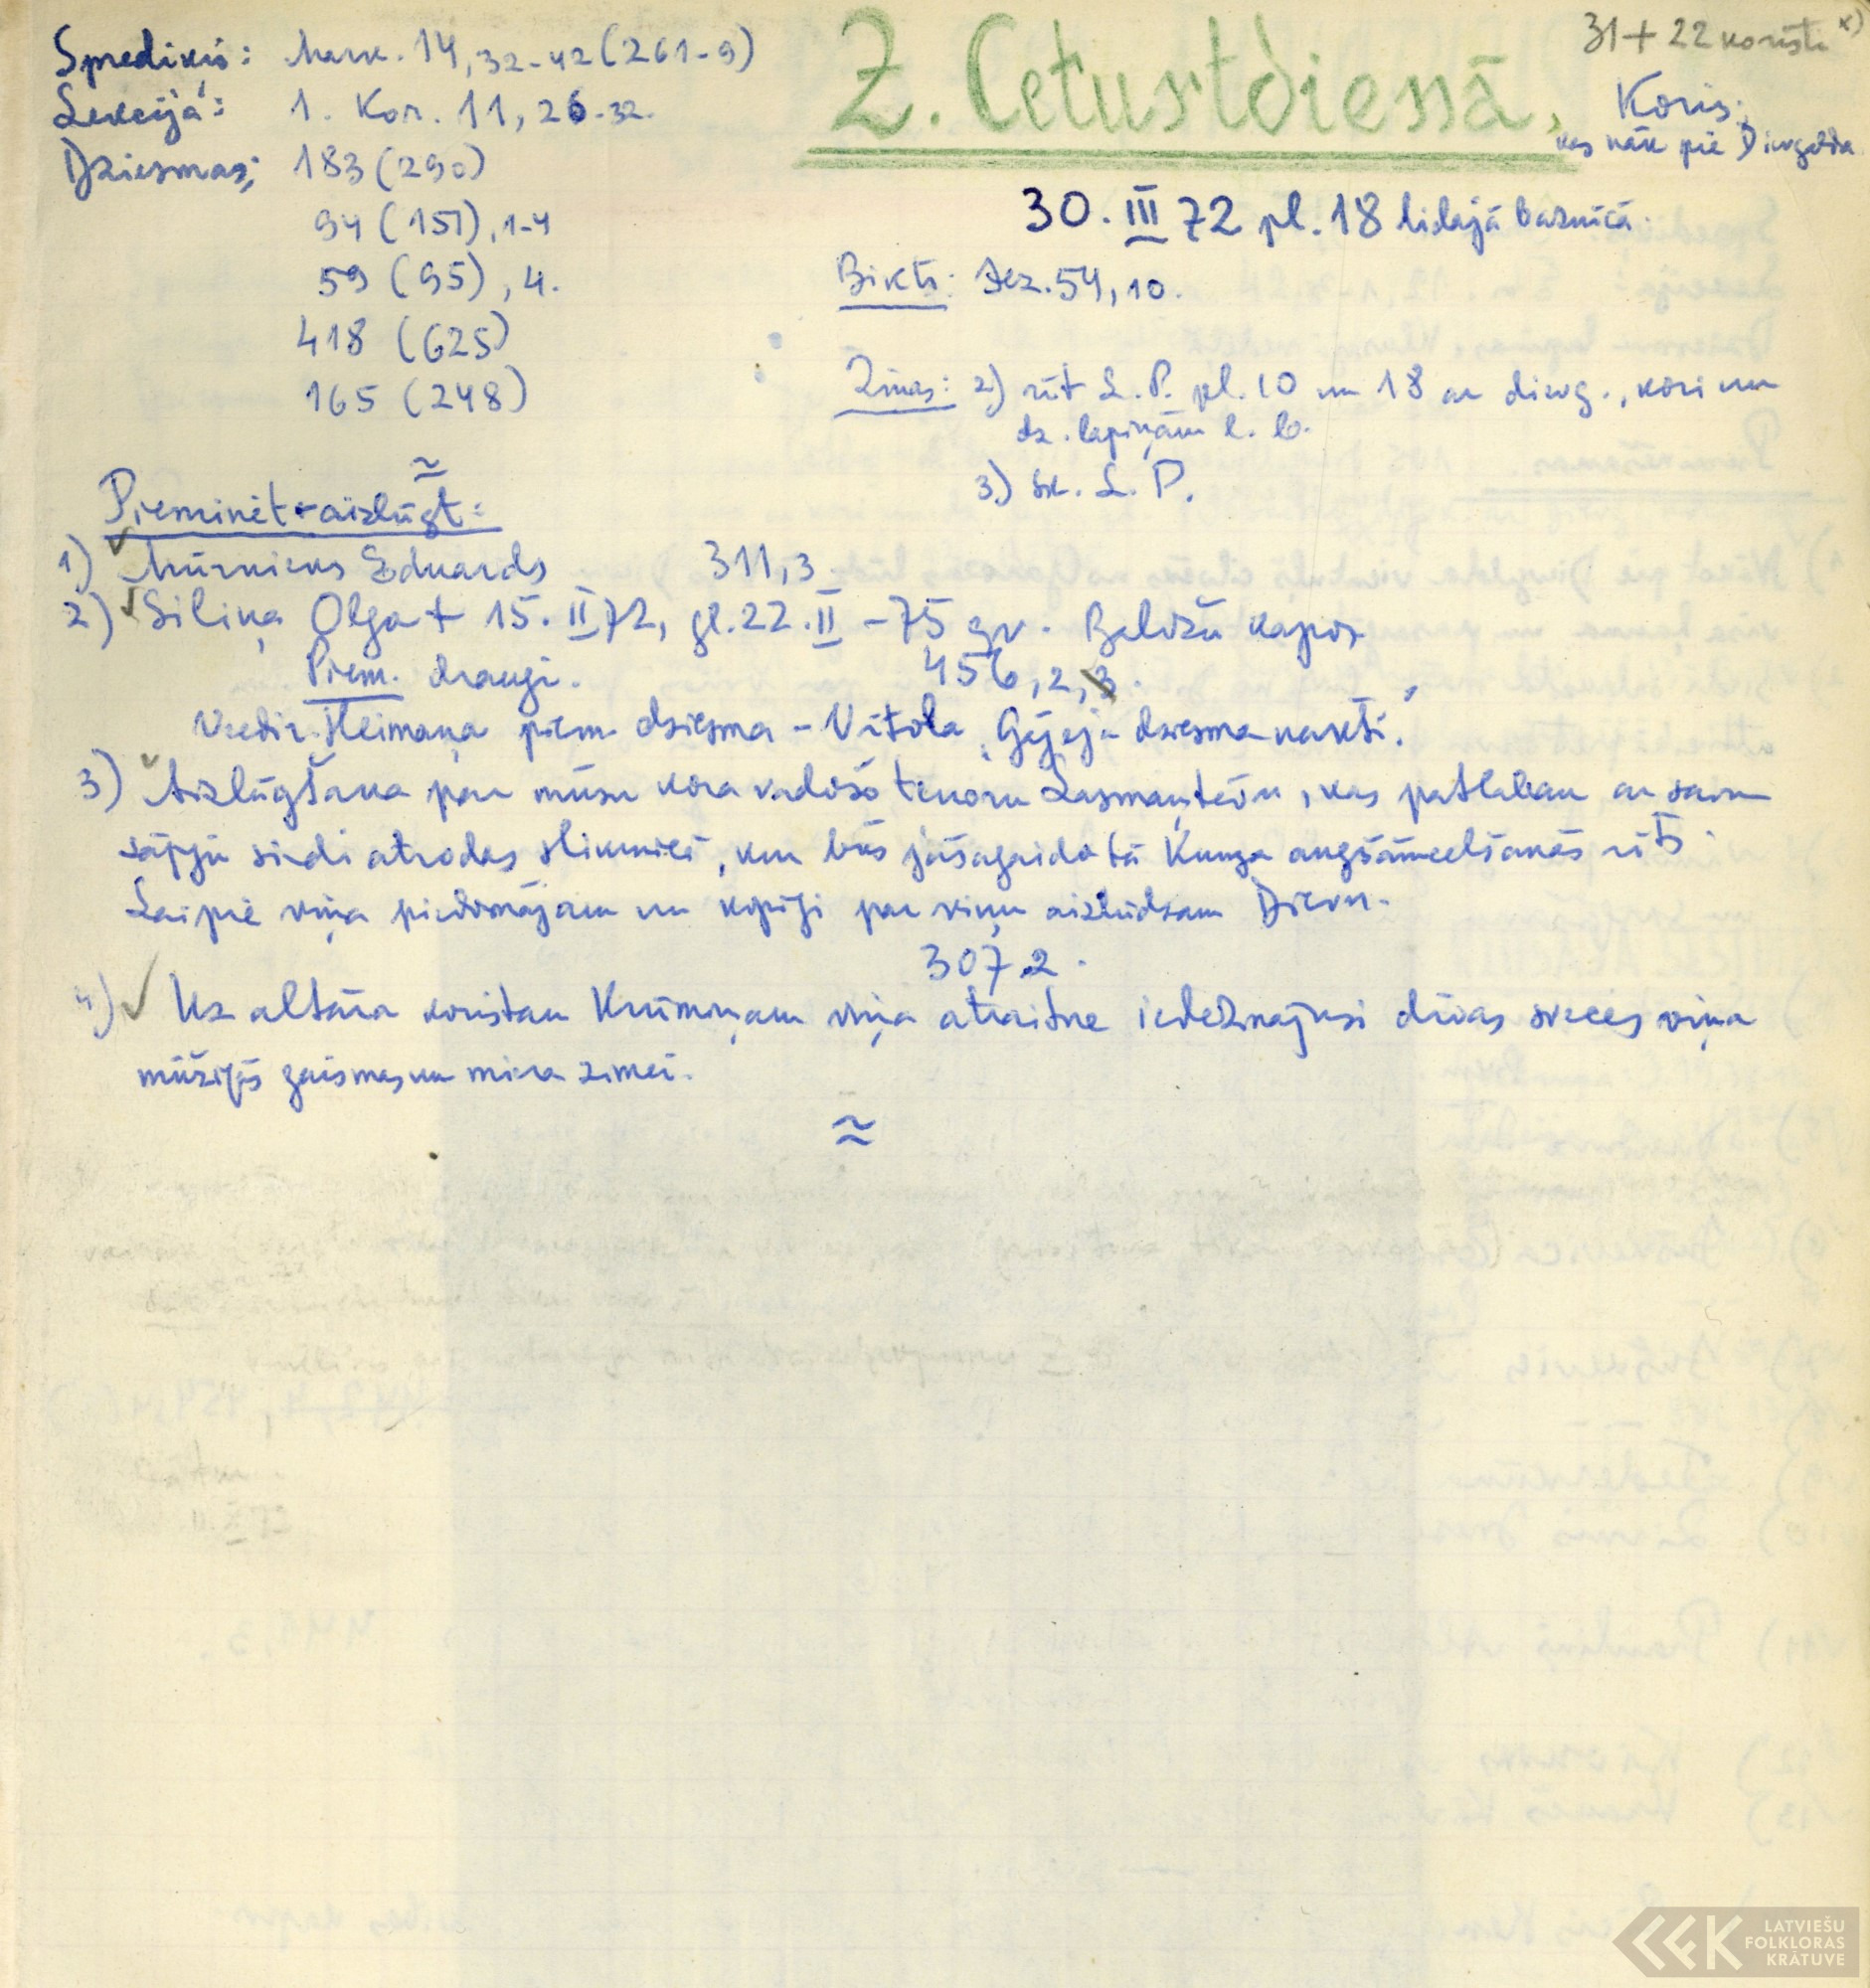 31 + 22 koristi x)
Z. Ceturtdienā,
Koris,
kas nāk pie Dievgalda
Sprediķis: Mark. 14, 32-42 (261-9)
Lekcija: 1. Kor. 11, 26-32.
Dziesmas: 183 (290)
94 (151), 1-4
59 (95), 4.
418 (625)
165 (248)
30. III 72 pl. 18 lielajā baznīcā.
Bikts: Jez. 54, 10.
Ziņas: 2) rīt L. P. pl. 10 un 18 ar dievg., kori un
dz. lapiņām l. b.
3) sk. L. P.
Pieminēt + aizlūgt:
1) Mūrnieks Eduards 311,3
2) Siliņa Olga + 15. II 72, gl. 22. II - 75 g.v. Baložu kapos
Piem. draugi. 456, 2, 3.
Heimaņa piem. dziesma - Vītola "Gājēja dziesma naktī."
3) Aizlūgšana par mūsu kora vadošo tenoru Lasmaņtēvu, kas patlaban ar savu
sāpju sirdi atrodas slimnīcā, kur būs jāsagaida tā Kunga augšāmcelšanās rīts.
Lai pie viņa piedomājam un kopīgi par viņu aizlūdzam Dievu.
307,2.
4) Uz altāra koristam Krūmiņam viņa atraitne iededzinājusi divas sveces viņa
mūžīgās gaismas un miera zīmei.
LATVIEŠU
FOLKLORAS
KRĀTUVE